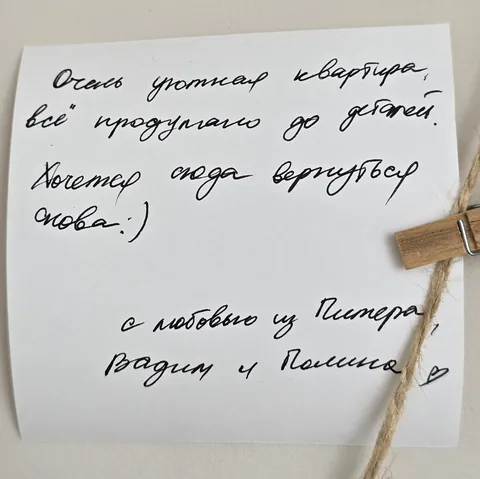 Очень уютная квартира,
всё продумано до деталей.
Хочется сюда вернуться
снова:)
с любовью из Питера,
Вадим и Полина ♡